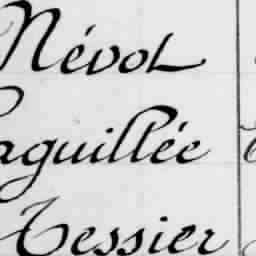 Névot
aguillée
Tessier